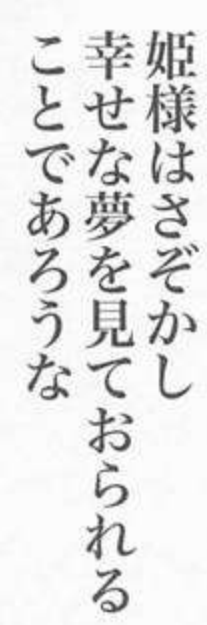 姫様はさぞかし
幸せな夢を見ておられる
ことであろうな